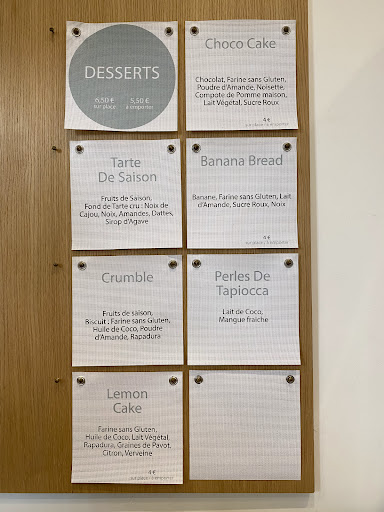 DESSERTS
6,50 € 5,50 €
sur place à emporter
Choco Cake
Chocolat, Farine sans Gluten,
Poudre d'Amande, Noisette,
Compote de Pomme maison,
Lait Végétal, Sucre Roux
4 €
sur place / à emporter
Tarte
De Saison
Fruits de Saison,
Fond de Tarte cru : Noix de
Cajou, Noix, Amandes, Dattes,
Sirop d'Agave
Banana Bread
Banane, Farine sans Gluten, Lait
d'Amande, Sucre Roux, Noix
4 €
sur place / à emporter
Crumble
Fruits de saison,
Biscuit : Farine sans Gluten,
Huile de Coco, Poudre
d'Amande, Rapadura
Perles De
Tapiocca
Lait de Coco,
Mangue fraiche
Lemon
Cake
Farine sans Gluten,
Huile de Coco, Lait Végétal,
Rapadura, Graines de Pavot,
Citron, Verveine
4 €
sur place / à emporter